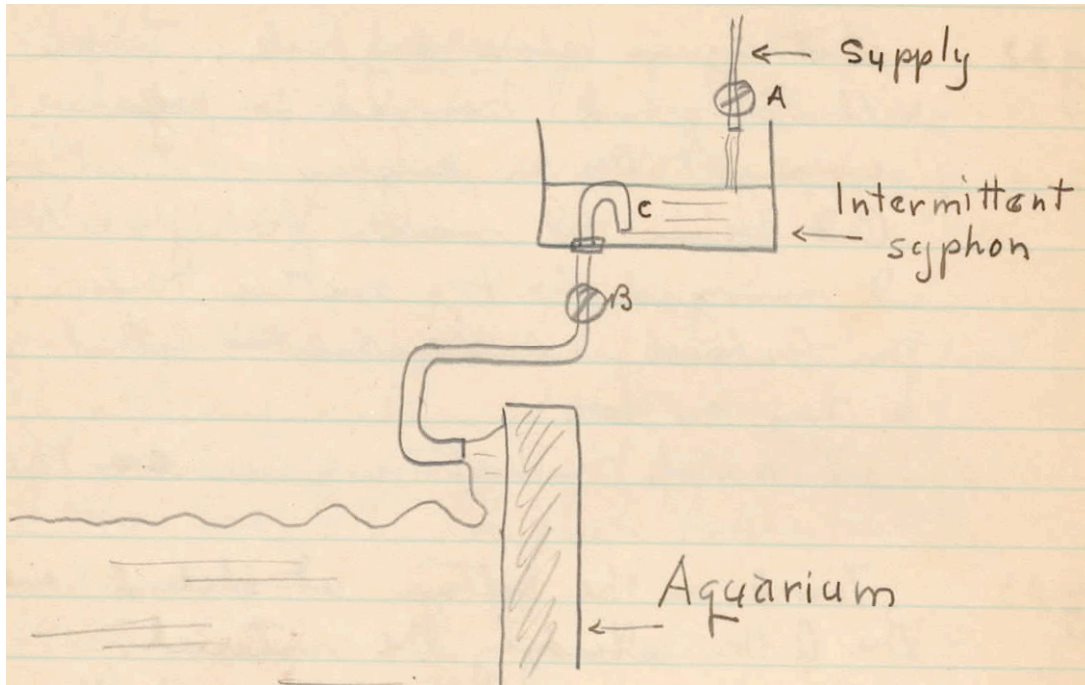 Supply
A
Intermittent
syphon
C
B
Aquarium